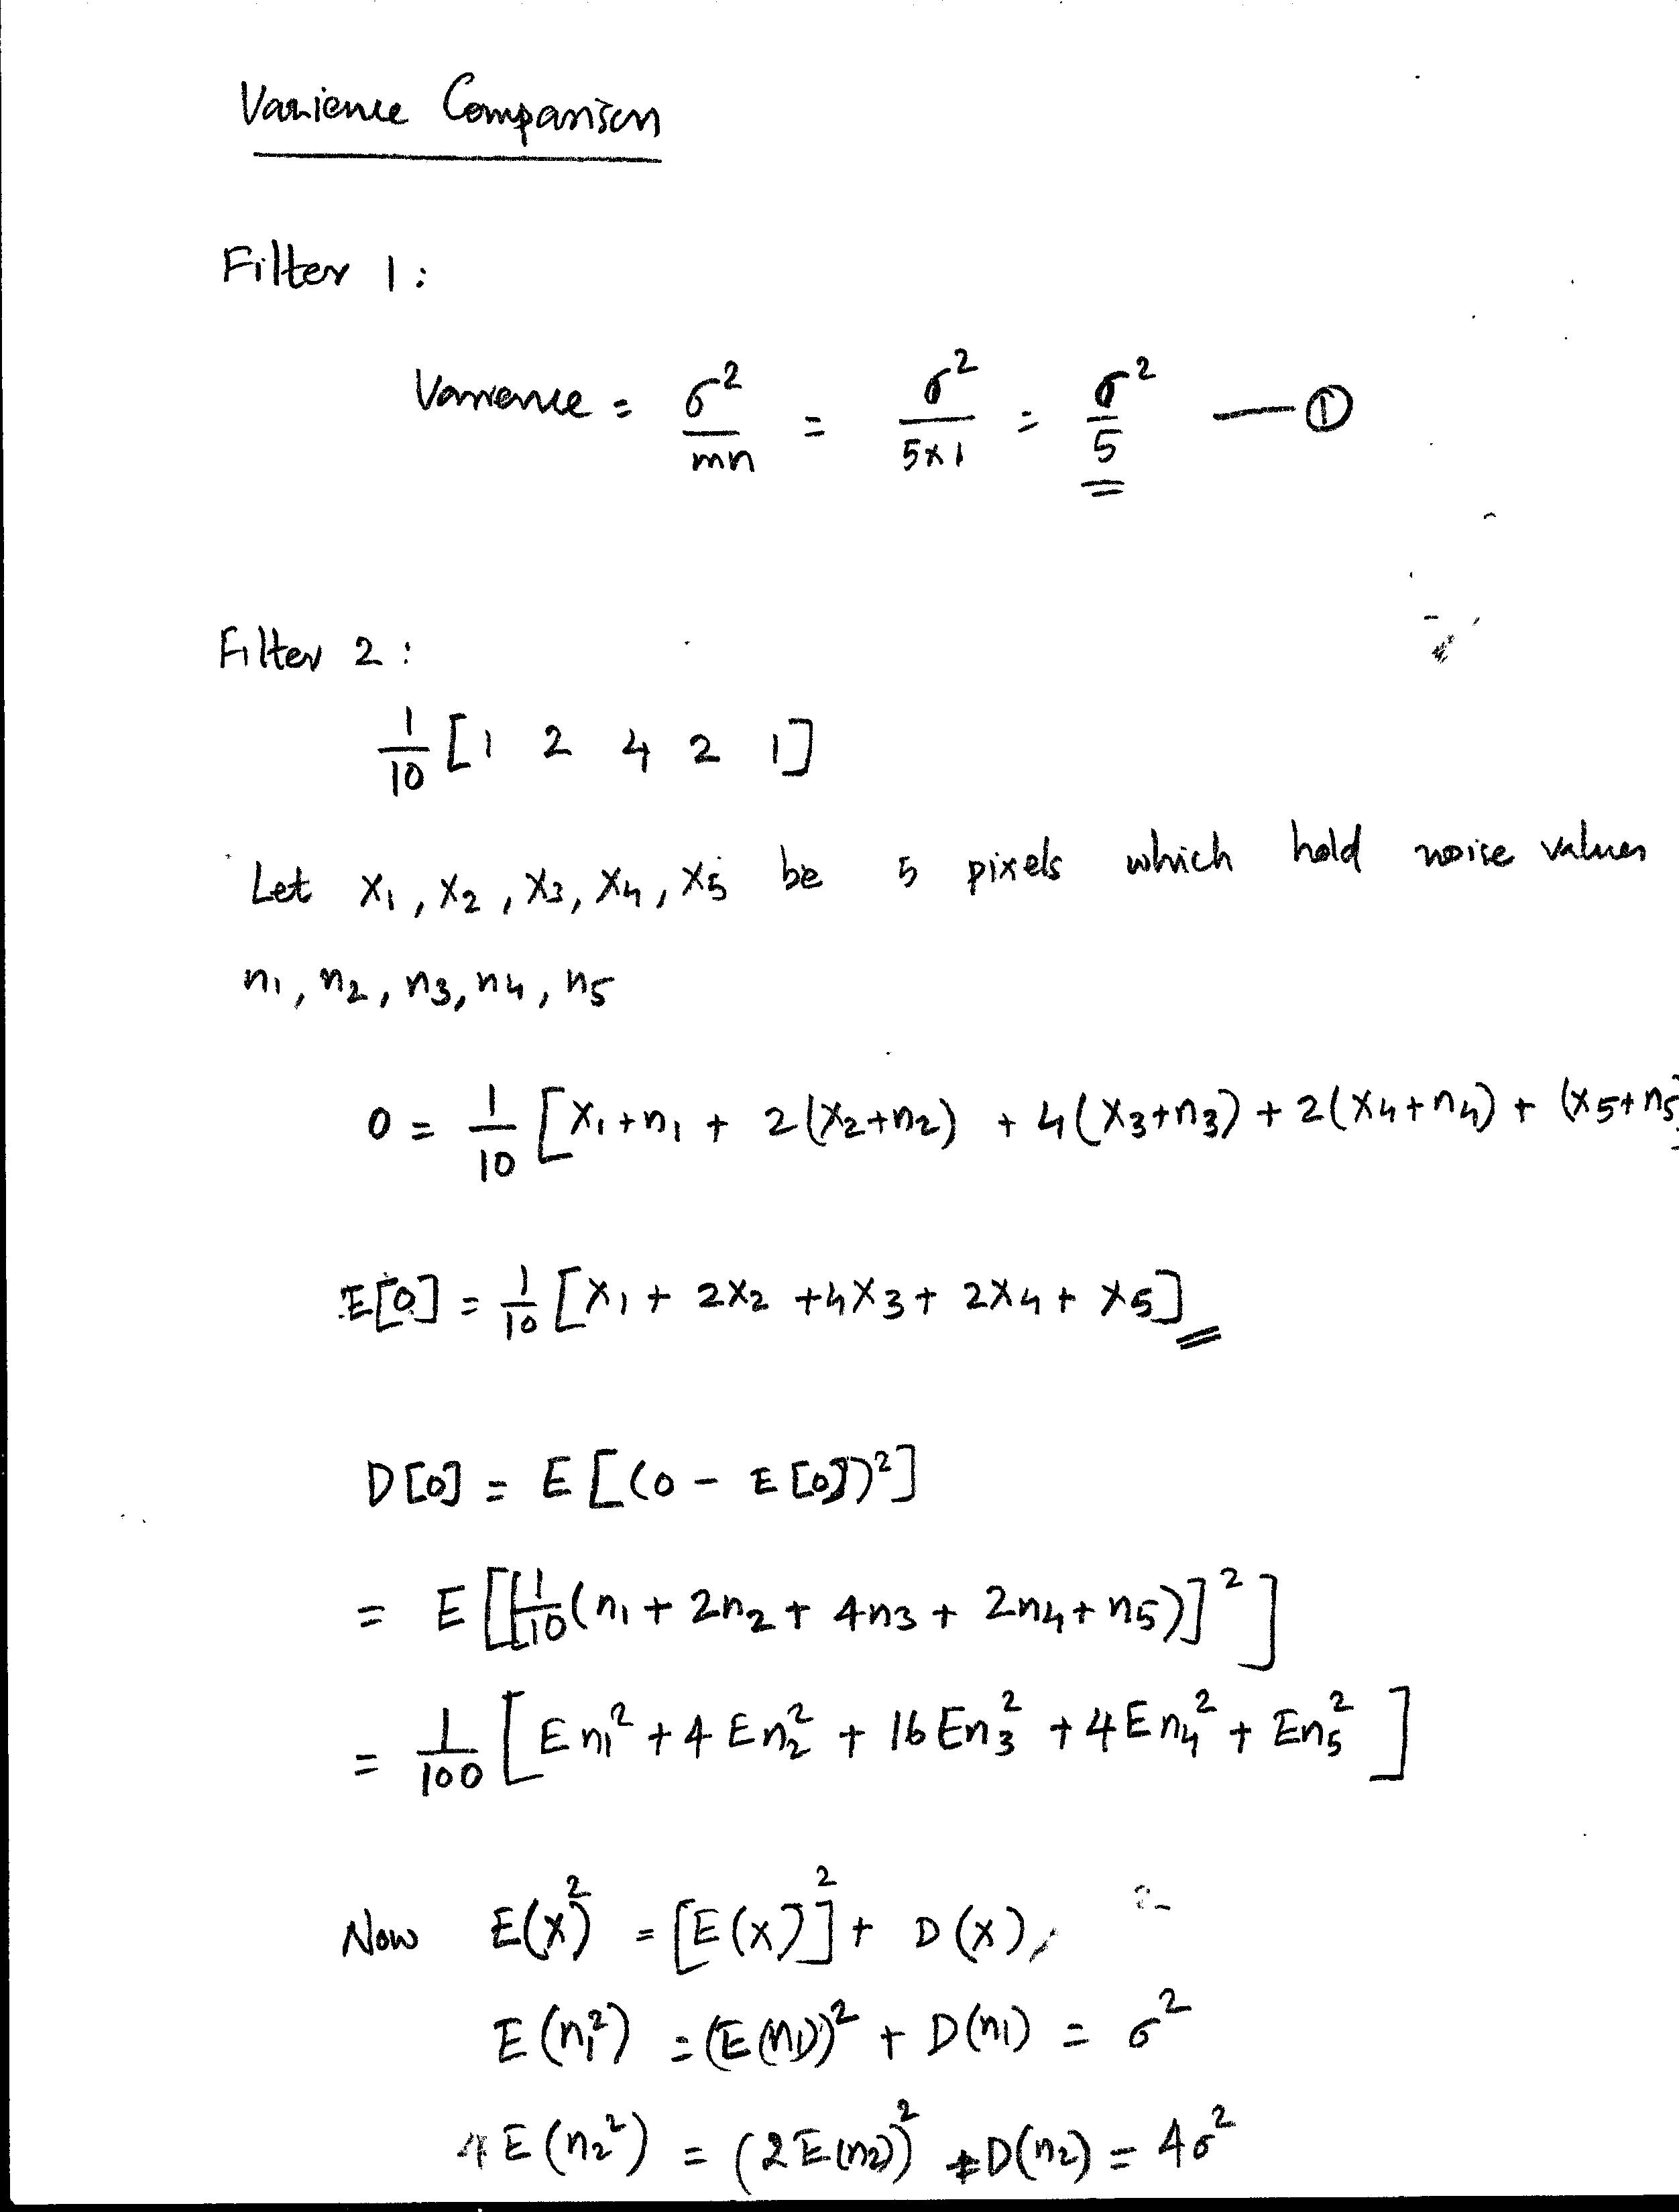 Varience Comparison
Filter 1:
Varience = σ²/mn = σ²/5×1 = σ²/5 — ①
Filter 2:
1/10 [1 2 4 2 1]
Let x₁, x₂, x₃, x₄, x₅ be 5 pixels which hold noise values
n₁, n₂, n₃, n₄, n₅
O = 1/10 [x₁+n₁ + 2(x₂+n₂) + 4(x₃+n₃) + 2(x₄+n₄) + (x₅+n₅]
E[O] = 1/10 [x₁ + 2x₂ + 4x₃ + 2x₄ + x₅]
D[O] = E[(O - E[O])²]
= E[[1/10(n₁ + 2n₂ + 4n₃ + 2n₄ + n₅)]²]
= 1/100 [En₁² + 4En₂² + 16En₃² + 4En₄² + En₅²]
Now E(x)² = [E(x)]² + D(x),
E(n₁²) = (E(n₁))² + D(n₁) = σ²
4E(n₂²) = (2E(n₂))² + D(n₂) = 4σ²